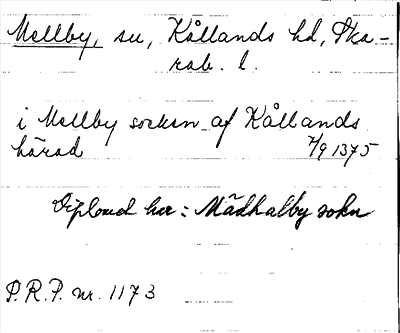 Mellby, sn, Kållands hd, Ska-
rab. l.
i Mellby socken af Kållands
härad 7/9 1375
Diplomet har: Mädhalby sokn
P.R.P. nr. 1173